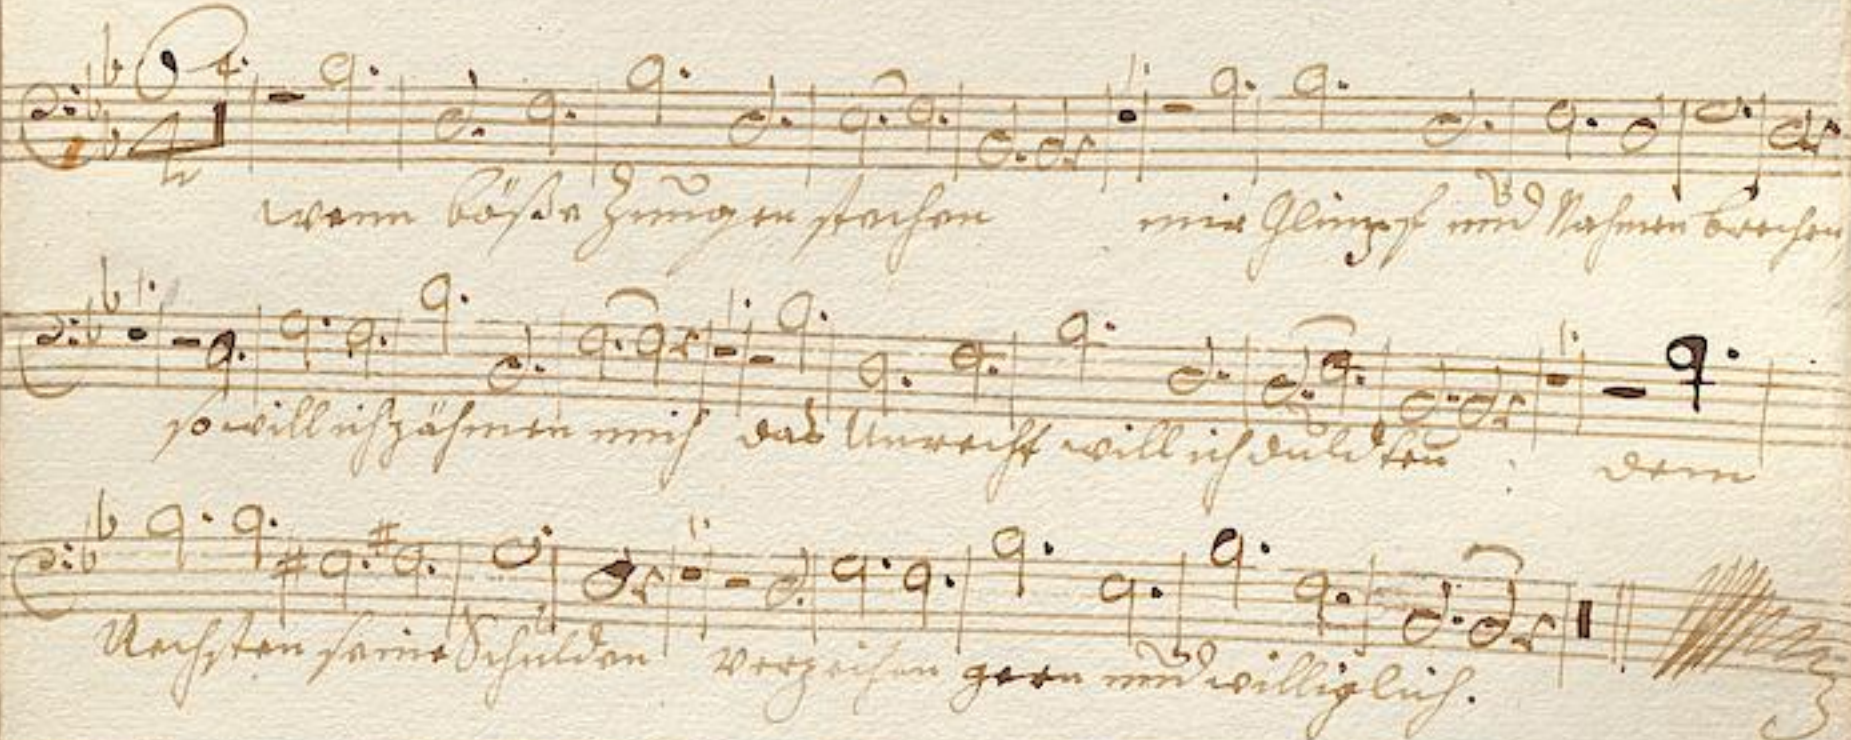 wenn bößе Zungen stechen mir Glimpf und Nahmen brechen
so will ich zähmen mich das Unrecht will ich dulden dem
Nechsten seine Schulden verzeihen gern und williglich.